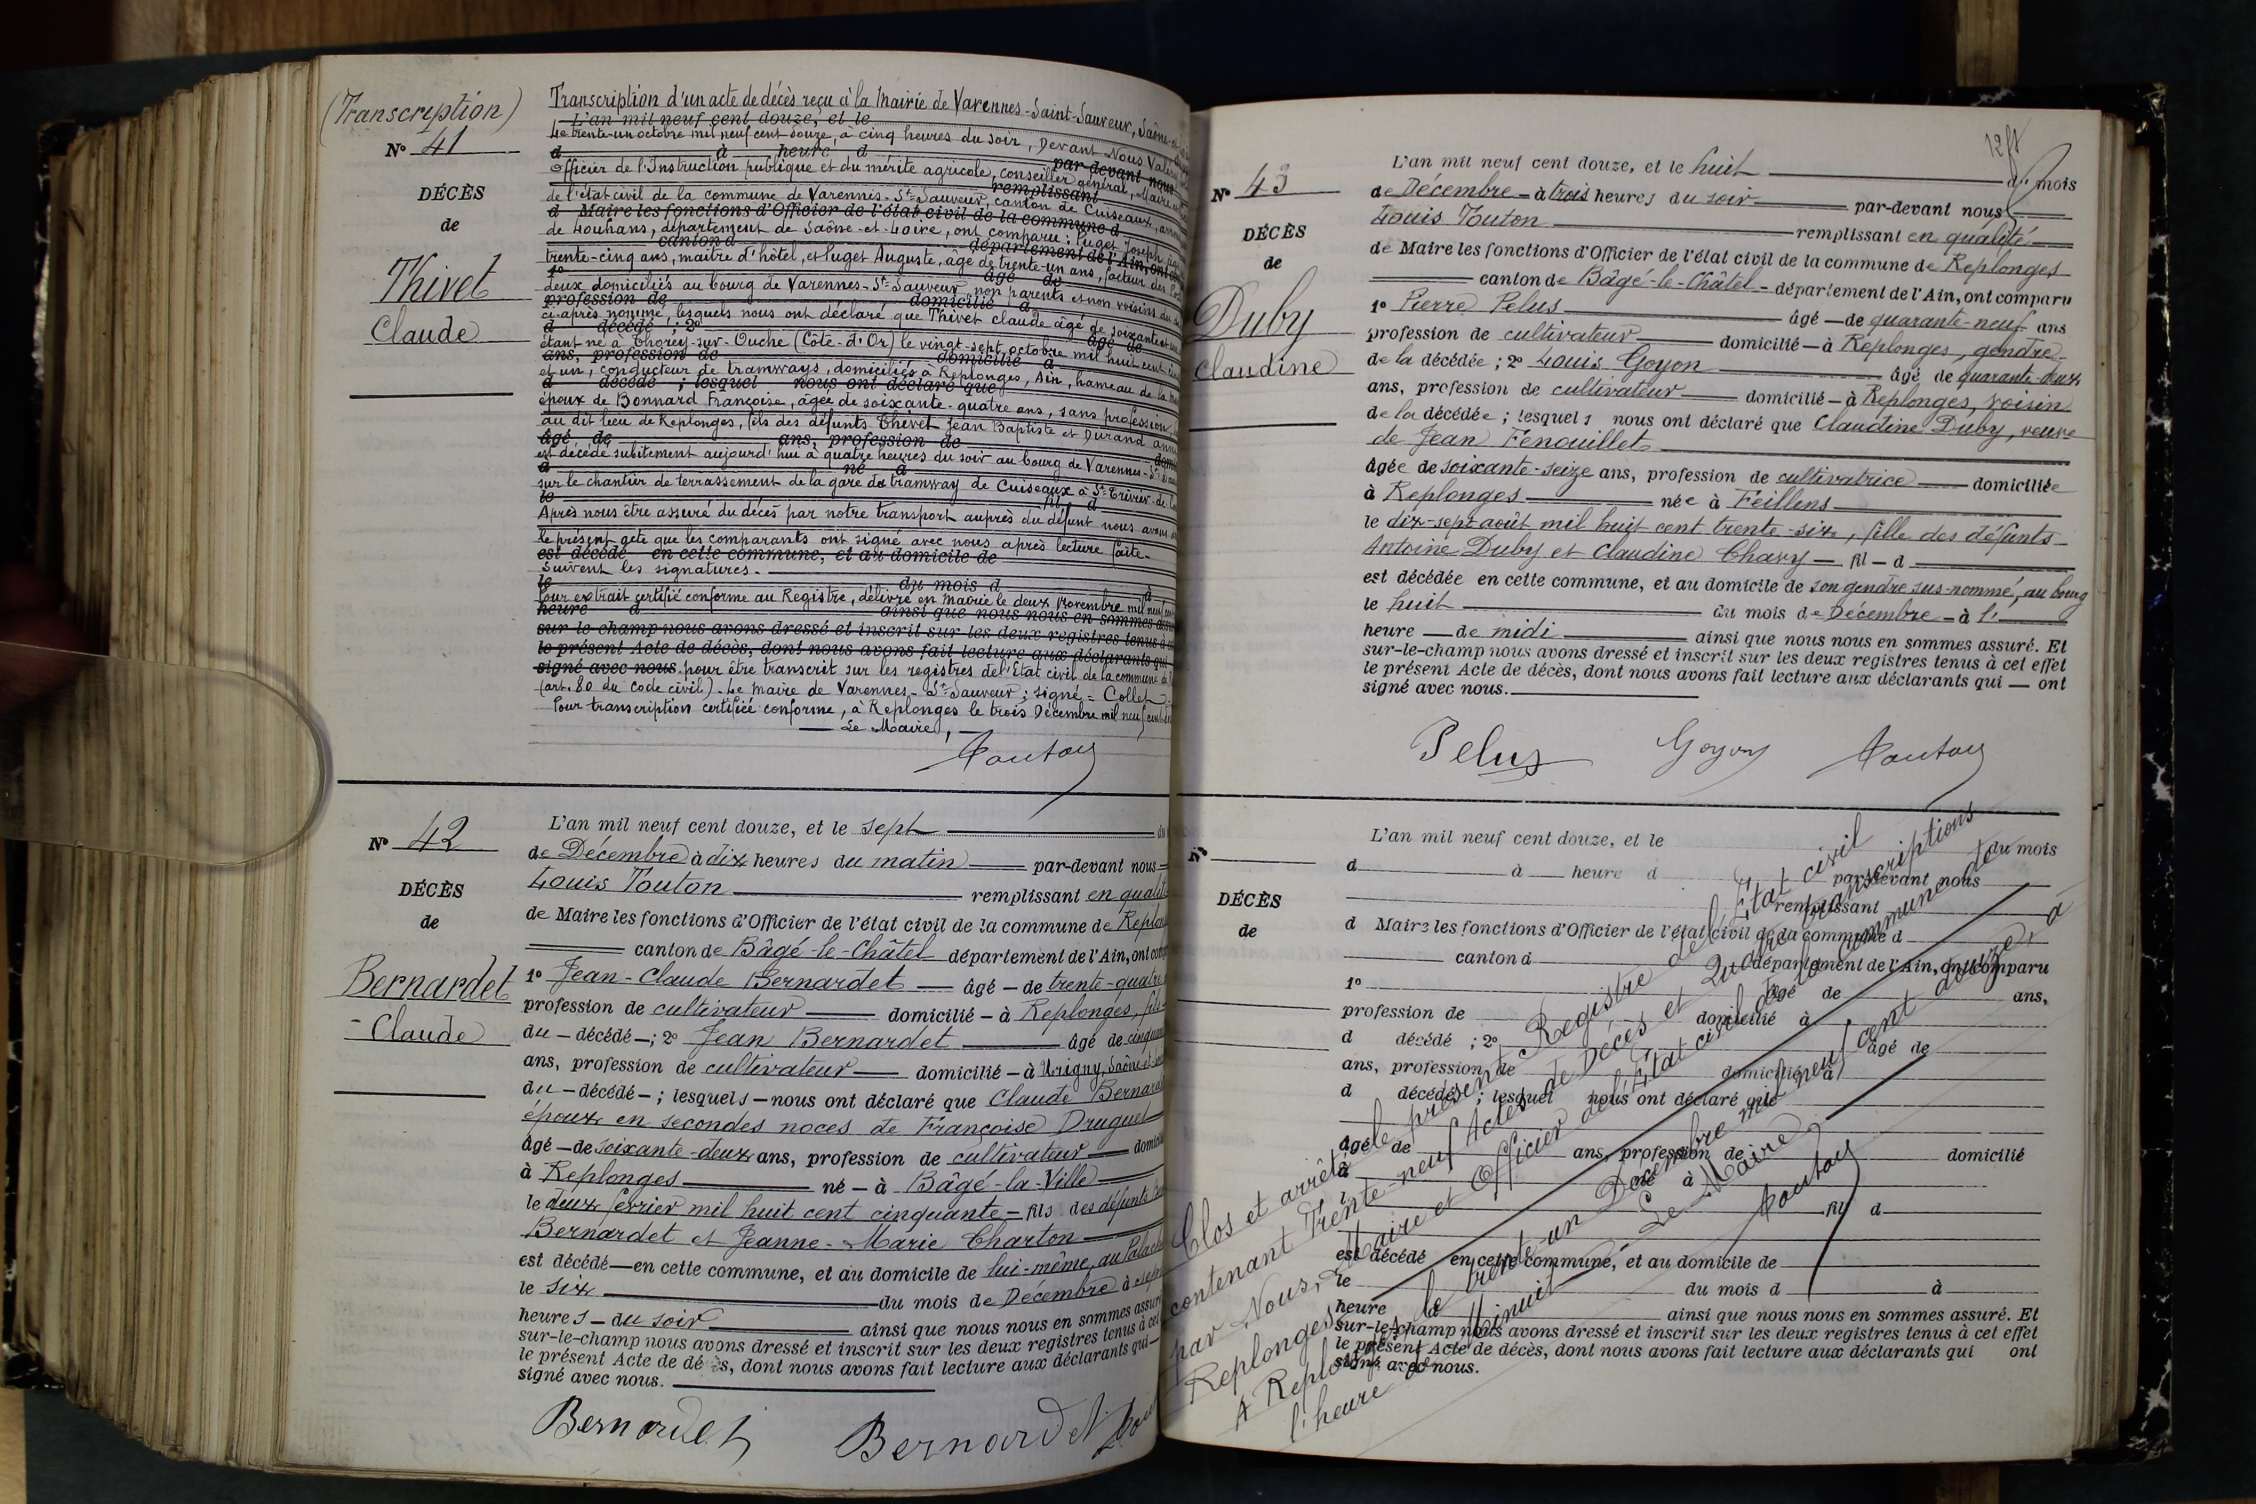 (Transcription)
N° 41
DÉCÈS
de
Thivet
Claude
Transcription d'un acte de décès reçu à la Mairie de Varennes-Saint-Sauveur, Saône-et
L'an mil neuf cent douze, et le
Le trente-un octobre mil neuf cent douze, à cinq heures du soir, Devant Nous
d à heure d par-devant nous
Officier de l'Instruction publique et du mérite agricole, conseiller général, Maire
remplissant
de l'état civil de la commune de Varennes-St-Sauveur, canton de Cuiseaux,
d Maire les fonctions d'Officier de l'état civil de la commune d
de Louhans, département de Saône-et-Loire, ont comparu : Puget Joseph
canton d département de l'Ain, ont
trente-cinq ans, maître d'hôtel, et Puget Auguste, âgé de trente-un ans, facteur des
1° âgé de
deux domiciliés au bourg de Varennes-St-Sauveur, non parents et non voisins du
profession de domicilié à
ci-après nommé, lesquels nous ont déclaré que Thivet Claude âgé de soixante et
d décédé ; 2° âgé de
étant né à Thorey-sur-Ouche (Côte-d'Or) le vingt-sept octobre mil huit cent
ans, profession de domicilié à
et un, conducteur de tramways, domiciliés à Replonges, Ain, hameau de la
d décédé ; lesquel nous ont déclaré que
époux de Bonnard Françoise, âgée de soixante-quatre ans, sans profession
au dit lieu de Replonges, fils des défunts Thivet Jean Baptiste et Durand
âgé de ans, profession de
est décédé subitement aujourd'hui à quatre heures du soir au bourg de Varennes-St
à né à
sur le chantier de terrassement de la gare du tramway de Cuiseaux à St-Trivier-de
le fil d
Après nous être assuré du décès par notre transport auprès du défunt nous avons
le présent acte que les comparants ont signé avec nous après lecture faite-
est décédé en cette commune, et au domicile de
Suivent les signatures.
le du mois d à
Pour extrait certifié conforme au Registre, délivré en Mairie le deux Novembre mil neuf
heure d ainsi que nous nous en sommes
sur-le-champ nous avons dressé et inscrit sur les deux registres tenus à
le présent Acte de décès, dont nous avons fait lecture aux déclarants qui
signé avec nous. pour être transcrit sur les registres de l'État civil de la commune de
(art. 80 du Code civil) - Le Maire de Varennes-St-Sauveur ; signé = Collet
Pour transcription certifiée conforme, à Replonges le trois Décembre mil neuf cent
Le Maire,
Touton
N° 42
DÉCÈS
de
Bernardet
Claude
L'an mil neuf cent douze, et le sept du
de Décembre à dix heures du matin par-devant nous
Louis Touton remplissant en qualité
de Maire les fonctions d'Officier de l'état civil de la commune de
canton de Bâgé-le-Châtel département de l'Ain, ont
1° Jean-Claude Bernardet âgé de trente-quatre
profession de cultivateur domicilié à Replonges, fils
du décédé ; 2° Jean Bernardet âgé de
ans, profession de cultivateur domicilié à Urigny, Saône-et
du décédé ; lesquels nous ont déclaré que Claude
époux en secondes noces de Françoise Druguet
âgé de soixante-deux ans, profession de cultivateur
à Replonges né à Bâgé-la-Ville
le deux février mil huit cent cinquante fils des défunts
Bernardet et Jeanne-Marie Charton
est décédé en cette commune, et au domicile de lui-même, au
le six du mois de Décembre à
heures du soir ainsi que nous nous en sommes
sur-le-champ nous avons dressé et inscrit sur les deux registres tenus à cet
le présent Acte de décès, dont nous avons fait lecture aux déclarants qui
signé avec nous.
Bernardet Bernardet
N° 43
DÉCÈS
de
Duby
Claudine
L'an mil neuf cent douze, et le huit du mois
de Décembre à trois heures du soir par-devant nous
Louis Touton remplissant en qualité
de Maire les fonctions d'Officier de l'état civil de la commune de Replonges
canton de Bâgé-le-Châtel département de l'Ain, ont comparu
1° Pierre Pelus âgé de quarante-neuf ans
profession de cultivateur domicilié à Replonges, gendre
de la décédée ; 2° Louis Goyon âgé de quarante-deux
ans, profession de cultivateur domicilié à Replonges, voisin
de la décédée ; lesquels nous ont déclaré que Claudine Duby, veuve
de Jean Fenouillet
âgée de soixante-seize ans, profession de cultivatrice domiciliée
à Replonges née à Feillens
le dix-sept août mil huit cent trente-six, fille des défunts
Antoine Duby et Claudine Chavy fil d
est décédée en cette commune, et au domicile de son gendre sus-nommé, au bourg
le huit du mois de Décembre à l'
heure de midi ainsi que nous nous en sommes assuré. Et
sur-le-champ nous avons dressé et inscrit sur les deux registres tenus à cet effet
le présent Acte de décès, dont nous avons fait lecture aux déclarants qui ont
signé avec nous.
Pelus Goyon Touton
N°
DÉCÈS
de
L'an mil neuf cent douze, et le du mois
d à heure d par-devant nous
remplissant
d Maire les fonctions d'Officier de l'état civil de la commune d
canton d département de l'Ain, ont comparu
1° âgé de ans,
profession de domicilié à
d décédé ; 2° âgé de
ans, profession de domicilié à
d décédé ; lesquel nous ont déclaré que
âgé de ans, profession de domicilié
à né à
l fil d
est décédé en cette commune, et au domicile de
le du mois d à
heure d ainsi que nous nous en sommes assuré. Et
sur-le-champ nous avons dressé et inscrit sur les deux registres tenus à cet effet
le présent Acte de décès, dont nous avons fait lecture aux déclarants qui ont
signé avec nous.
Clos et arrêté le présent Registre de l'État civil
contenant Trente-neuf Actes de Décès et Quatre transcriptions
par Nous, Maire et Officier de l'État civil de la commune de
Replonges
A Replonges, le trente-un Décembre mil neuf cent douze, à
l'heure de Minuit
Le Maire,
Touton